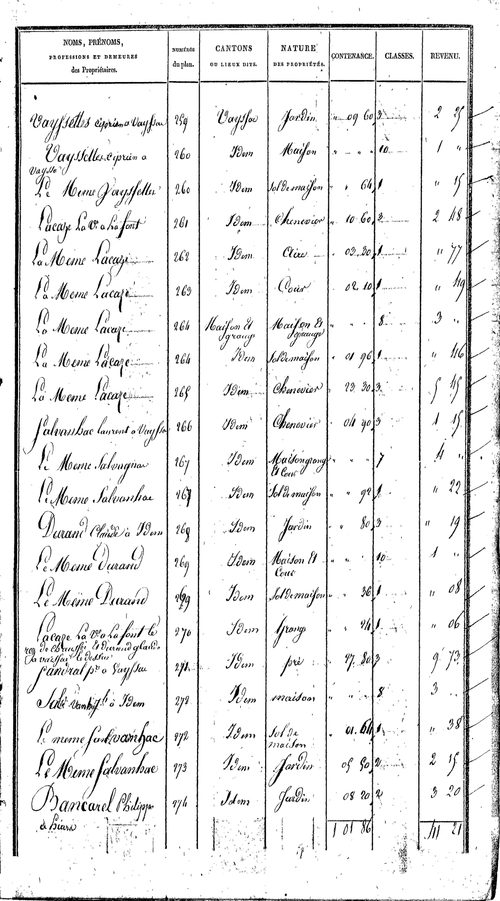 NOMS, PRÉNOMS, PROFESSIONS ET DEMEURES des Propriétaires. NUMÉROS du plan. CANTONS OU LIEUX DITS. NATURE DES PROPRIÉTÉS. CONTENANCE. CLASSES. REVENU.
Vayssettes ciprien a Vaysse 259 Vaysse Jardin " 09 60 3 2 25
Vayssettes ciprien a Vaysse 260 Idem Maison " " " 10 1 "
Le Meme Vayssettes 260 Idem Sol de maison " " 64 1 " 15
Lacaze La Ve a Lafont 261 Idem Chenevier " 10 60 3 2 48
La Meme Lacaze 262 Idem Aire " 03 30 1 " 77
La Meme Lacaze 263 Idem Cour " 02 10 1 " 49
La Meme Lacaze 264 Maison Et grange Maison Et grange " " " 8 3 "
La Meme Lacaze 264 Idem Sol de maison " 01 96 1 " 46
La Meme Lacaze 265 Idem Chenevier " 23 30 3 5 45
Salvanhac laurent a Vaysse 266 Idem Chenevier " 04 90 3 1 15
Le Meme Salvagnac 267 Idem Maison grange Et Cour " " " 7 4 "
Le Meme Salvanhac 267 Idem Sol de maison " " 92 1 " 22
Durand Claude à Idem 268 Idem Jardin " " 80 3 " 19
Le Meme Durand 269 Idem Maison Et Cour " " " 10 1 "
Le Meme Durand 269 Idem Sol de maison " " 36 1 " 08
Lacaze La Ve a Lafont le 270 Idem grange " " 24 1 " 06
271 Idem pré " 27 80 3 9 73
a Vaysse
à Idem 272 Idem maison " " " 8 3
Le meme Salvanhac 272 Idem Sol de maison " 01 64 1 " 38
Le Meme Salvanhac 273 Idem Jardin " 05 50 2 2 15
Bancarel Philippe 274 Idem Jardin " 08 20 2 3 20
1 01 86 41 21